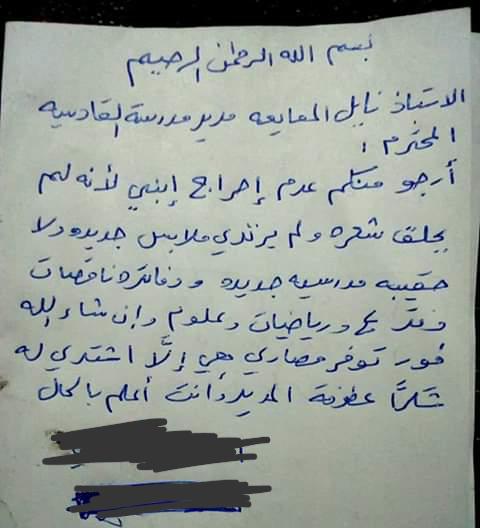 بسم الله الرحمن الرحيم
الاستاذ نايل المعايعه مدير مدرسة القادسيه
المحترم :
أرجو منكم عدم إحراج إبني لأنه لم
يحلق شعره ولم يرتدي ملابس جديده ولا
حقيبه مدرسيه جديده ودفاتره ناقصات
ورياضيات وعلوم وإن شاء الله
فور توفر مصاري هي إلَّا اشتري له
شكراً عطوفة المدير وأنت أعلم بالحال